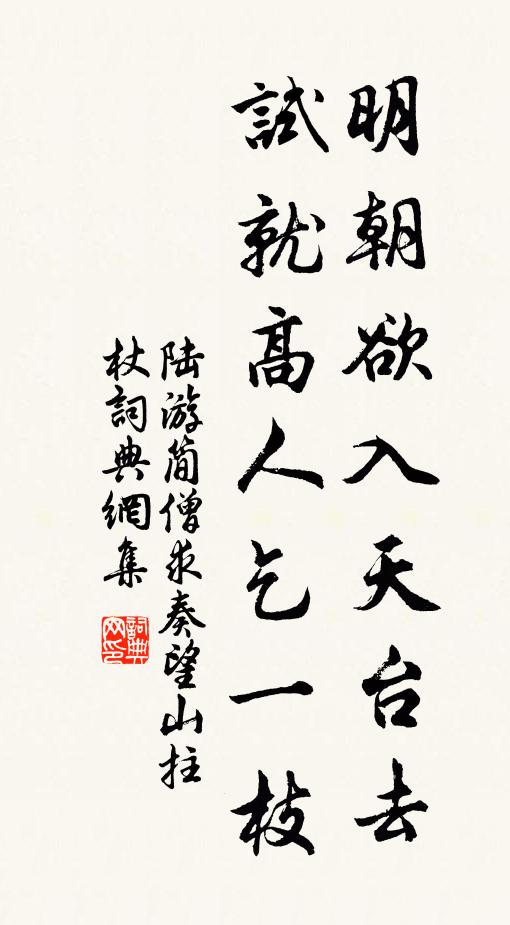 明朝欲入天台去
試就高人乞一枝
陆游简僧求奏望山拄
杖詞典網集
詞典网印